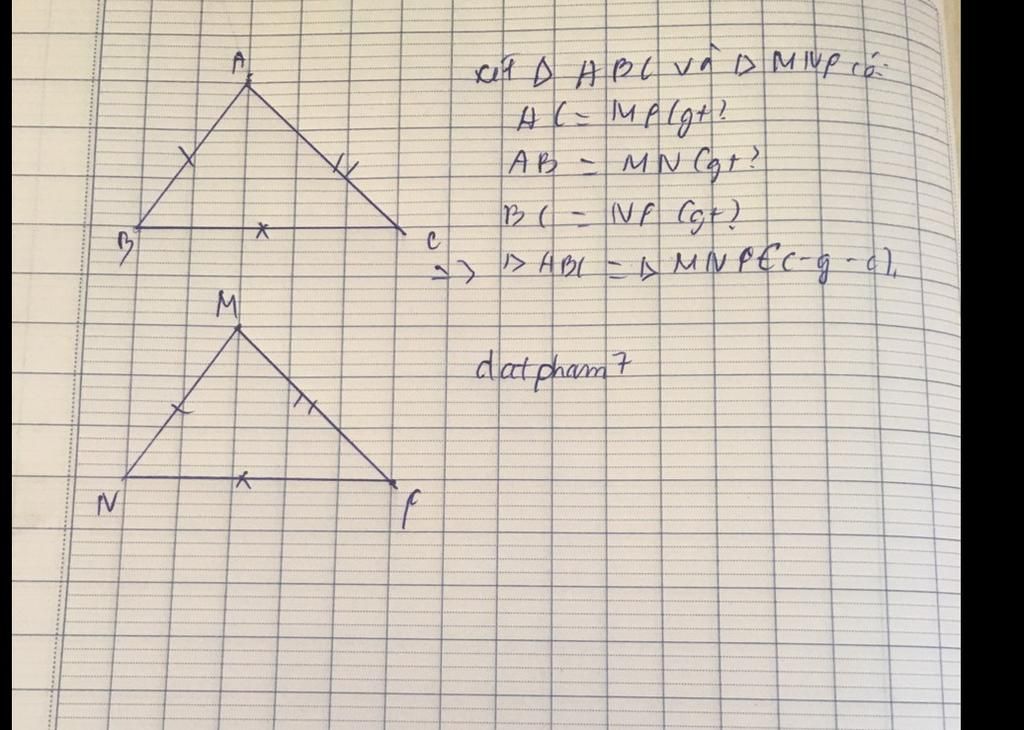 A
B
C
M
N
P
xét Δ ABC và Δ MNP có:
AC = MP (gt)
AB = MN (gt)
BC = NP (gt)
=> Δ ABC = Δ MNP (c-g-c).
datpham7